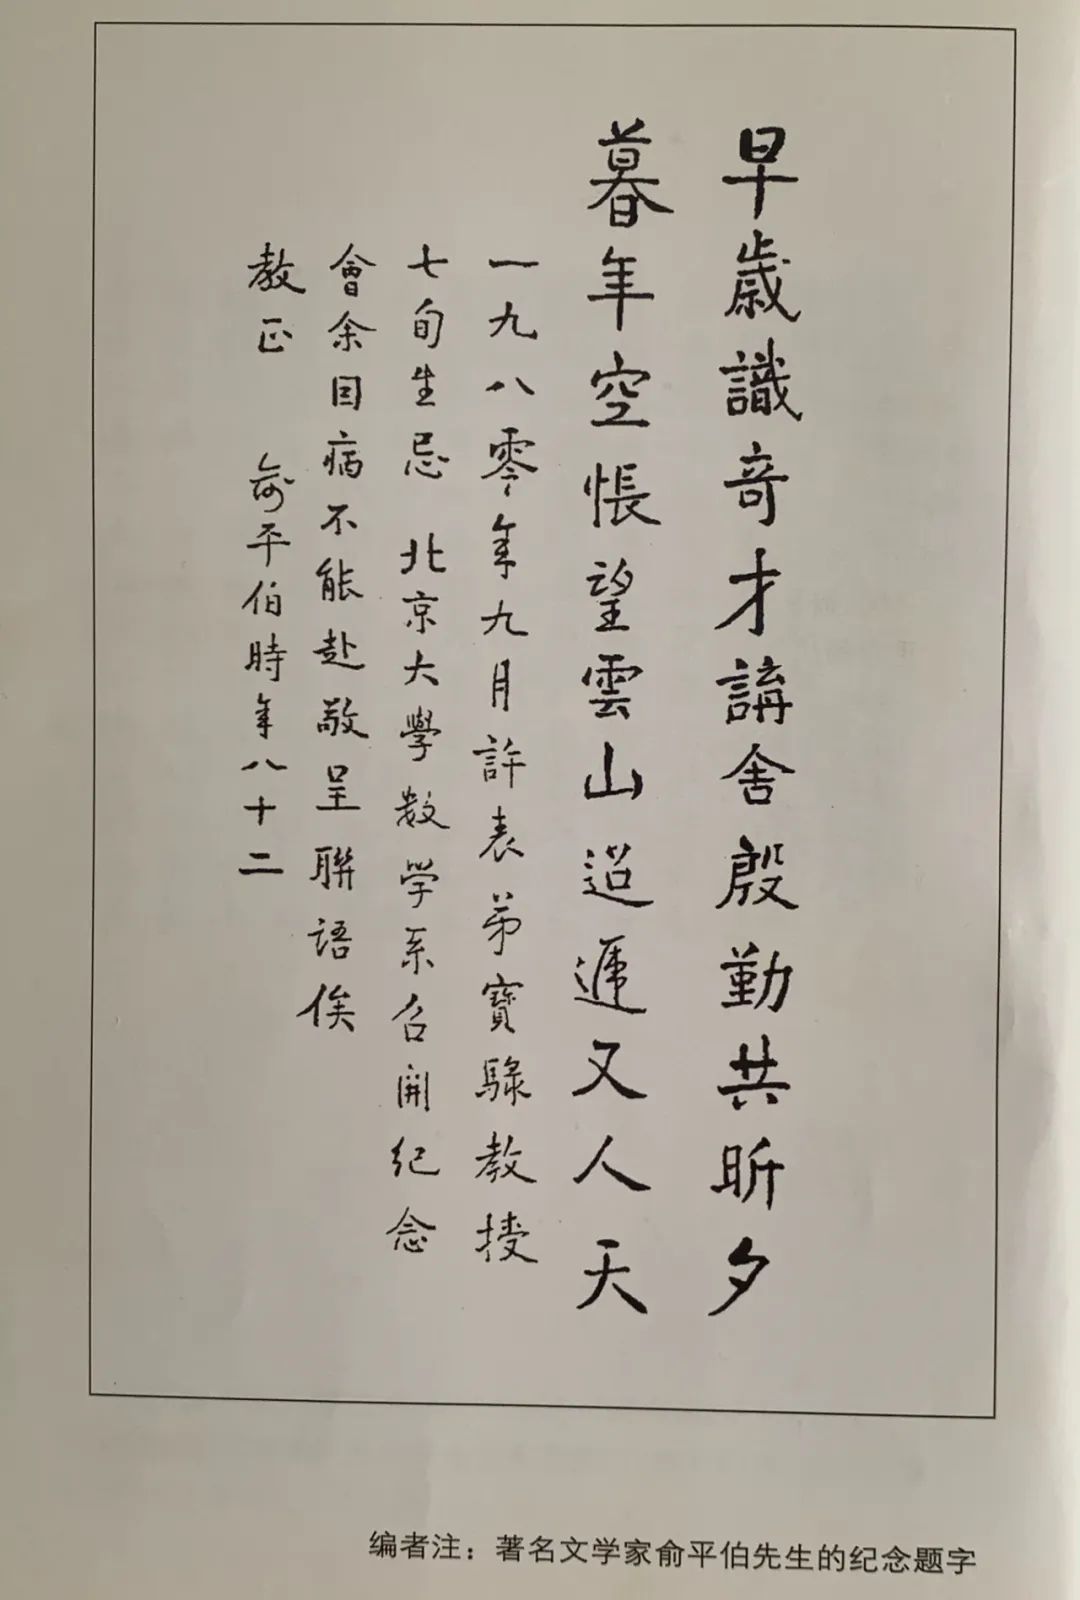 早歲識奇才講舍殷勤共昕夕
暮年空悵望雲山迢遞又人天
一九八零年九月許表弟寶騄教授
七旬生忌 北京大學数学系召開纪念
會余因病不能赴敬呈聯語俟
教正 俞平伯時年八十二
编者注：著名文学家俞平伯先生的纪念题字